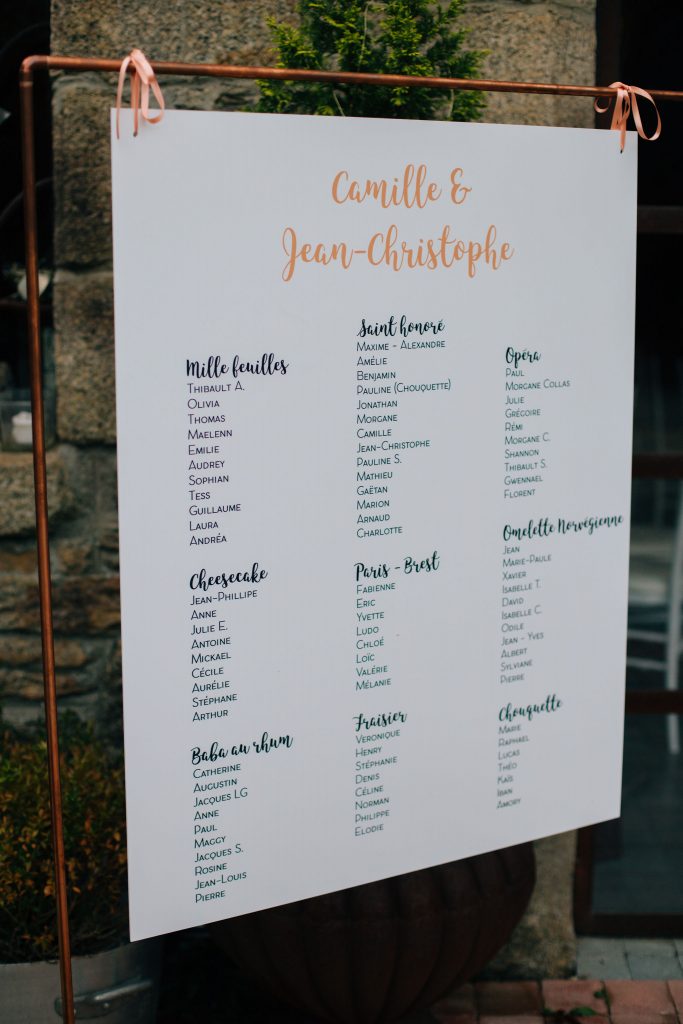 Camille &
Jean-Christophe
Mille feuilles
Thibault A.
Olivia
Thomas
Maelenn
Emilie
Audrey
Sophian
Tess
Guillaume
Laura
Andréa
Cheesecake
Jean-Phillipe
Anne
Julie E.
Antoine
Mickael
Cécile
Aurélie
Stéphane
Arthur
Baba au rhum
Catherine
Augustin
Jacques LG
Anne
Paul
Maggy
Jacques S.
Rosine
Jean-Louis
Pierre
Saint honoré
Maxime - Alexandre
Amélie
Benjamin
Pauline (Chouquette)
Jonathan
Morgane
Camille
Jean-Christophe
Pauline S.
Mathieu
Gaëtan
Marion
Arnaud
Charlotte
Paris - Brest
Fabienne
Eric
Yvette
Ludo
Chloé
Loïc
Valérie
Mélanie
Fraisier
Veronique
Henry
Stéphanie
Denis
Céline
Norman
Philippe
Elodie
Opéra
Paul
Morgane Collas
Julie
Grégoire
Rémi
Morgane C.
Shannon
Thibault S.
Gwennael
Florent
Omelette Norvégienne
Jean
Marie-Paule
Xavier
Isabelle T.
David
Isabelle C.
Odile
Jean - Yves
Albert
Sylviane
Pierre
Chouquette
Marie
Raphael
Lucas
Théo
Kaïs
Iban
Amory